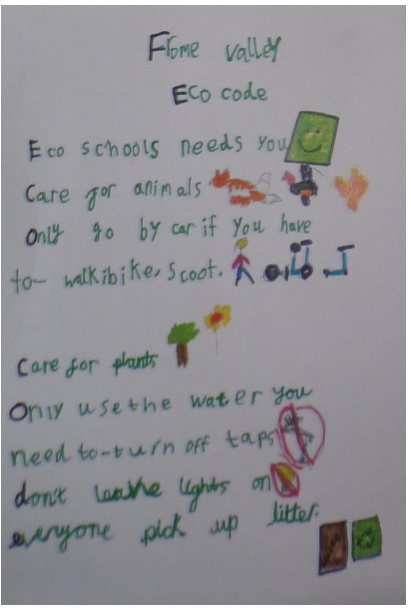 Frome valley
Eco code
Eco schools needs you
Care for animals
Only go by car if you have
to- walk,bike, scoot.
Care for plants
Only use the water you
need to-turn off taps
don't leave lights on
everyone pick up litter.